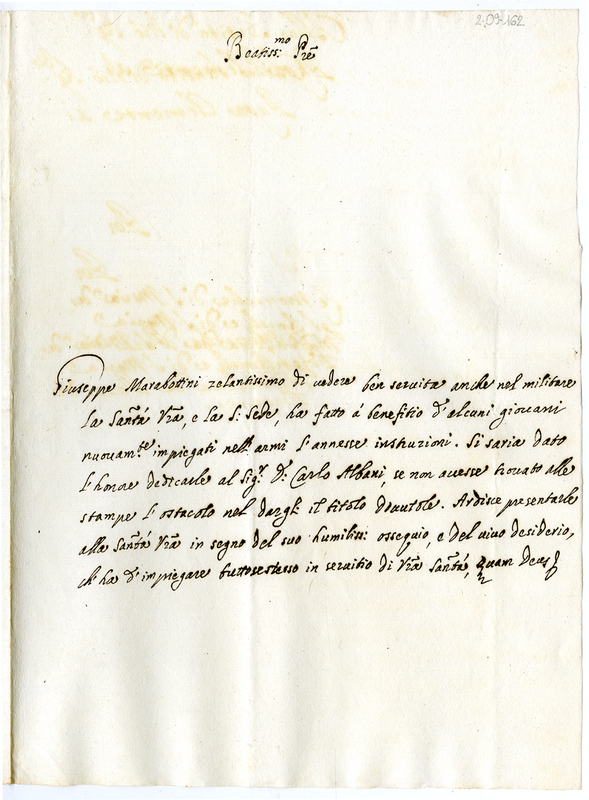 2-09-162
Beatiss:mo Pre
Giuseppe Marabottini zelantissimo di vedere ben servita anche nel militare
la Santà Vra, e la S: Sede, ha fatto à benefitio d'alcuni giovani
nuovam.te impiegati nell'armi l'annesse instruzioni. Si saria dato
l'honore dedicarle al Sig.r D: Carlo Albani, se non avesse trovato alle
stampe l'ostacolo nel dargli il titolo dovutole. Ardisce presentarle
alla Santà Vra in segno del suo humiliss: ossequio, e del vivo desiderio,
ch'ha d'impiegare tuttosestesso in servitio di Vra Santà, Quam Deus